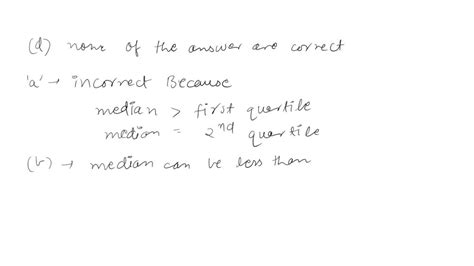 (d) none of the answer are correct
'a' → incorrect Because
median > first quartile
median = 2nd quartile
(b) → median can be less than